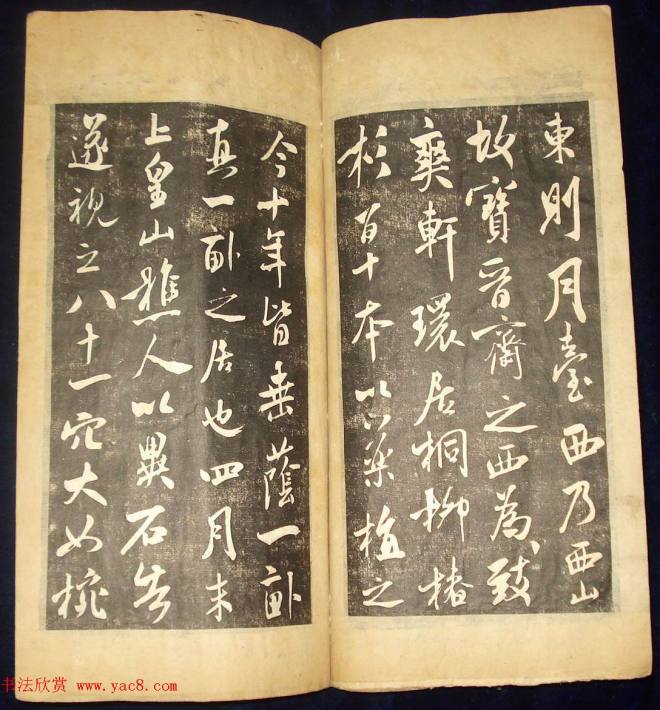 東則月臺西乃西山
故寶晉齋之西為致
爽軒環居桐柳椿
杉百十本以藥植之
今十年皆垂蔭一畝
真一畝之居也四月末
上皇山樵人以異石告
遂視之八十一穴大如椀
书法欣赏 www.yac8.com